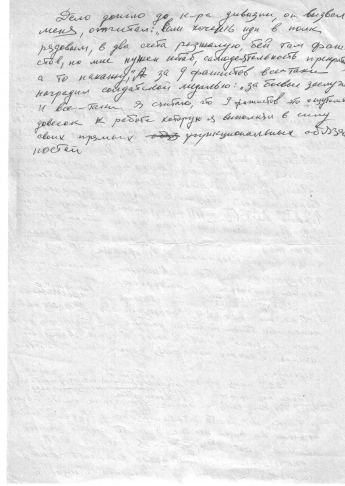 Дело дошло до к-ра дивизии, он вызвал
меня, отчитал: "если хочешь иди в полк
рядовым, в два счета разжалую, бей там фаш
стов, но мне нужен штаб, самодеятельность прекрат
а то накажу". А за 9 фашистов все-таки
наградил солдатской медалью: "за боевые заслуг
И все-таки я считаю, что 9 фашистов это
довесок к работе которую я выполнял в силу
своих прямых функциональных обязан
ностей